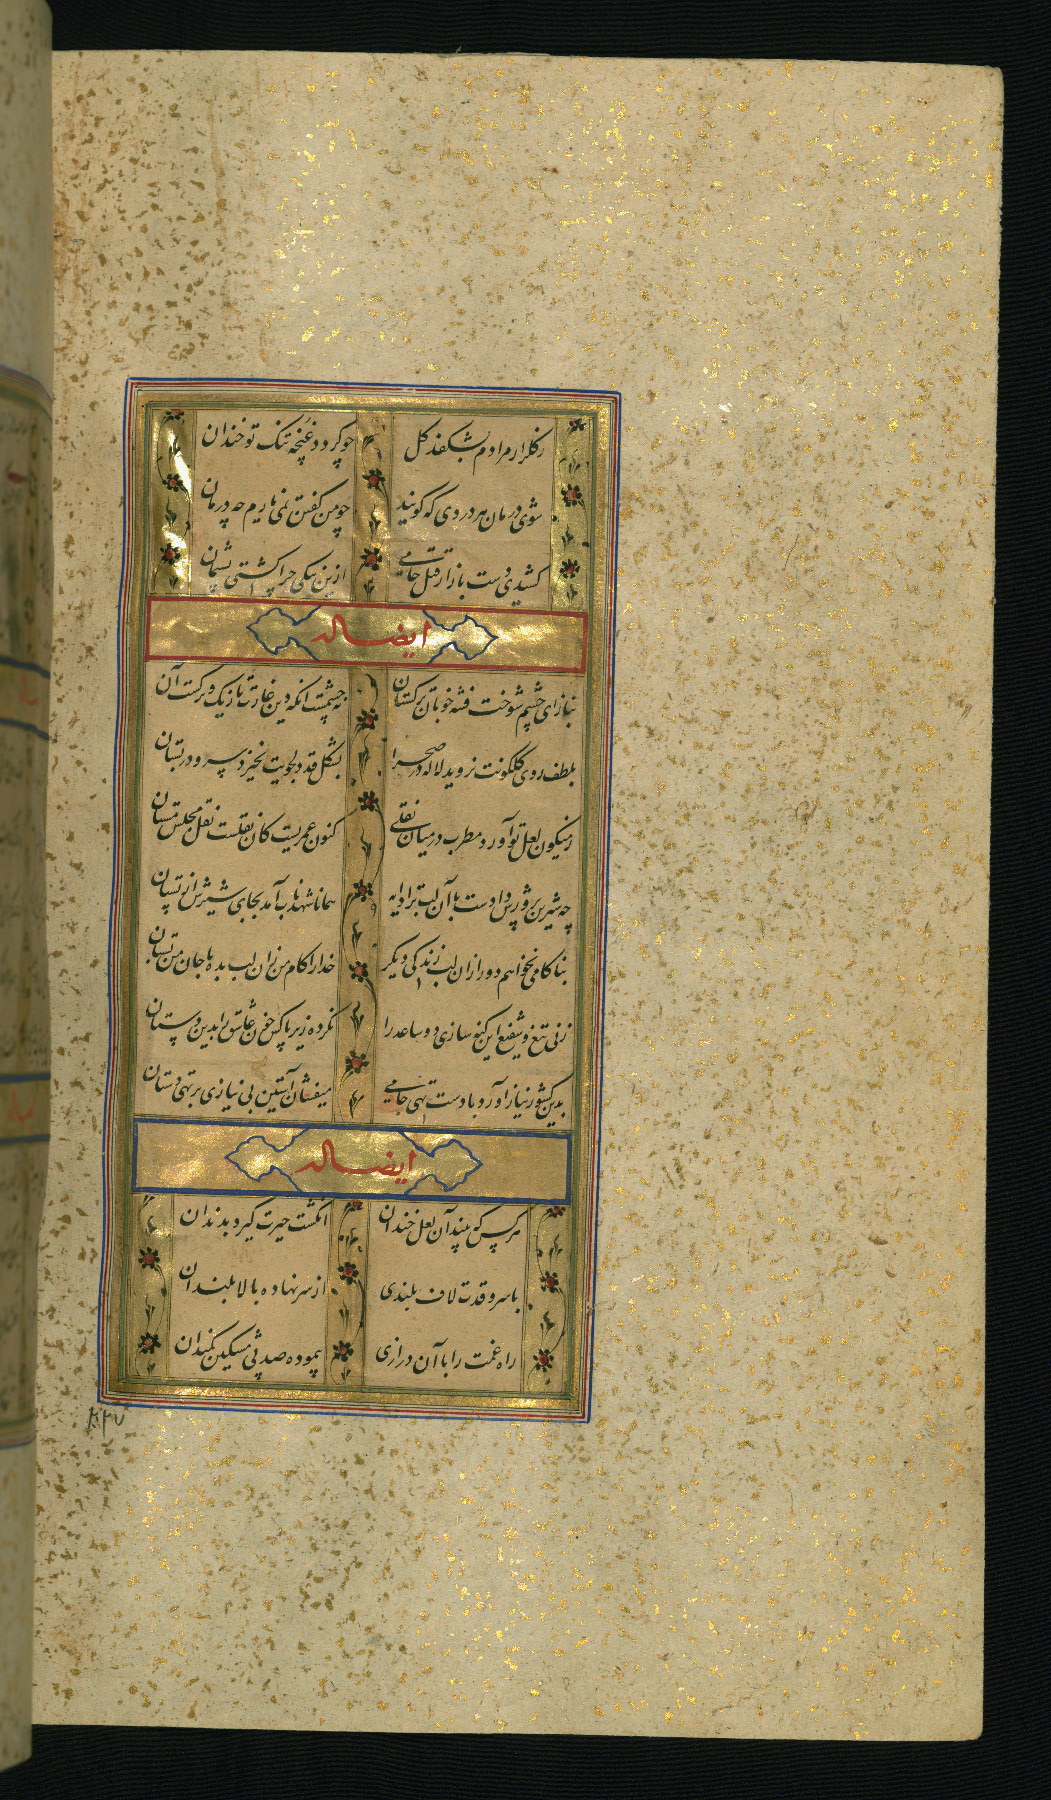 ز گلزار مرادم بشکفد گل چو گردد غنچه تنگ تو خندان
شوی درمان هر دردی که گویند چو من گفتن نمی یاریم چه درمان
کشیدی دست باز از قتل جامی ازین نیکی چرا گشتی پشیمان
ایضا له
بناز ای چشم شوخت فتنه خوبان ترکستان به چشمت آنکه دین غارت بازیک و برکت آن
بلطف روی گلگونت نروید لاله در صحرا بشکل قد دلجویت نخیزد سرو در بستان
ز میگون لعل تو آورد مطرب در میان نقلی کنون عمریست کان نقلست نقل مجلس مستان
چه شیرین پرورش دادست با آن لب ترا دایه همانا شهد ناب آمد بجای شیرش از پستان
بناکامی نخواهم دور ازان لب زندگی دیگر خدا را کام من زان لب بده یا جان من بستان
زنی تیغ و شفیع این گنه سازی دو ساعد را نکرده زیر پا کس خون عاشق را بدین دستان
بدین کشور نیاز آورد با دست تهی جامی میفشان آستین بی نیازی بر تهی دستان
ایضا له
هر کس که بیند آن لعل خندان انگشت حیرت گیرد بدندان
با سرو قدت لاف بلندی از سر نهاده بالا بلندان
راه غمت را با آن درازی پیموده صد پی مسکین کمندان